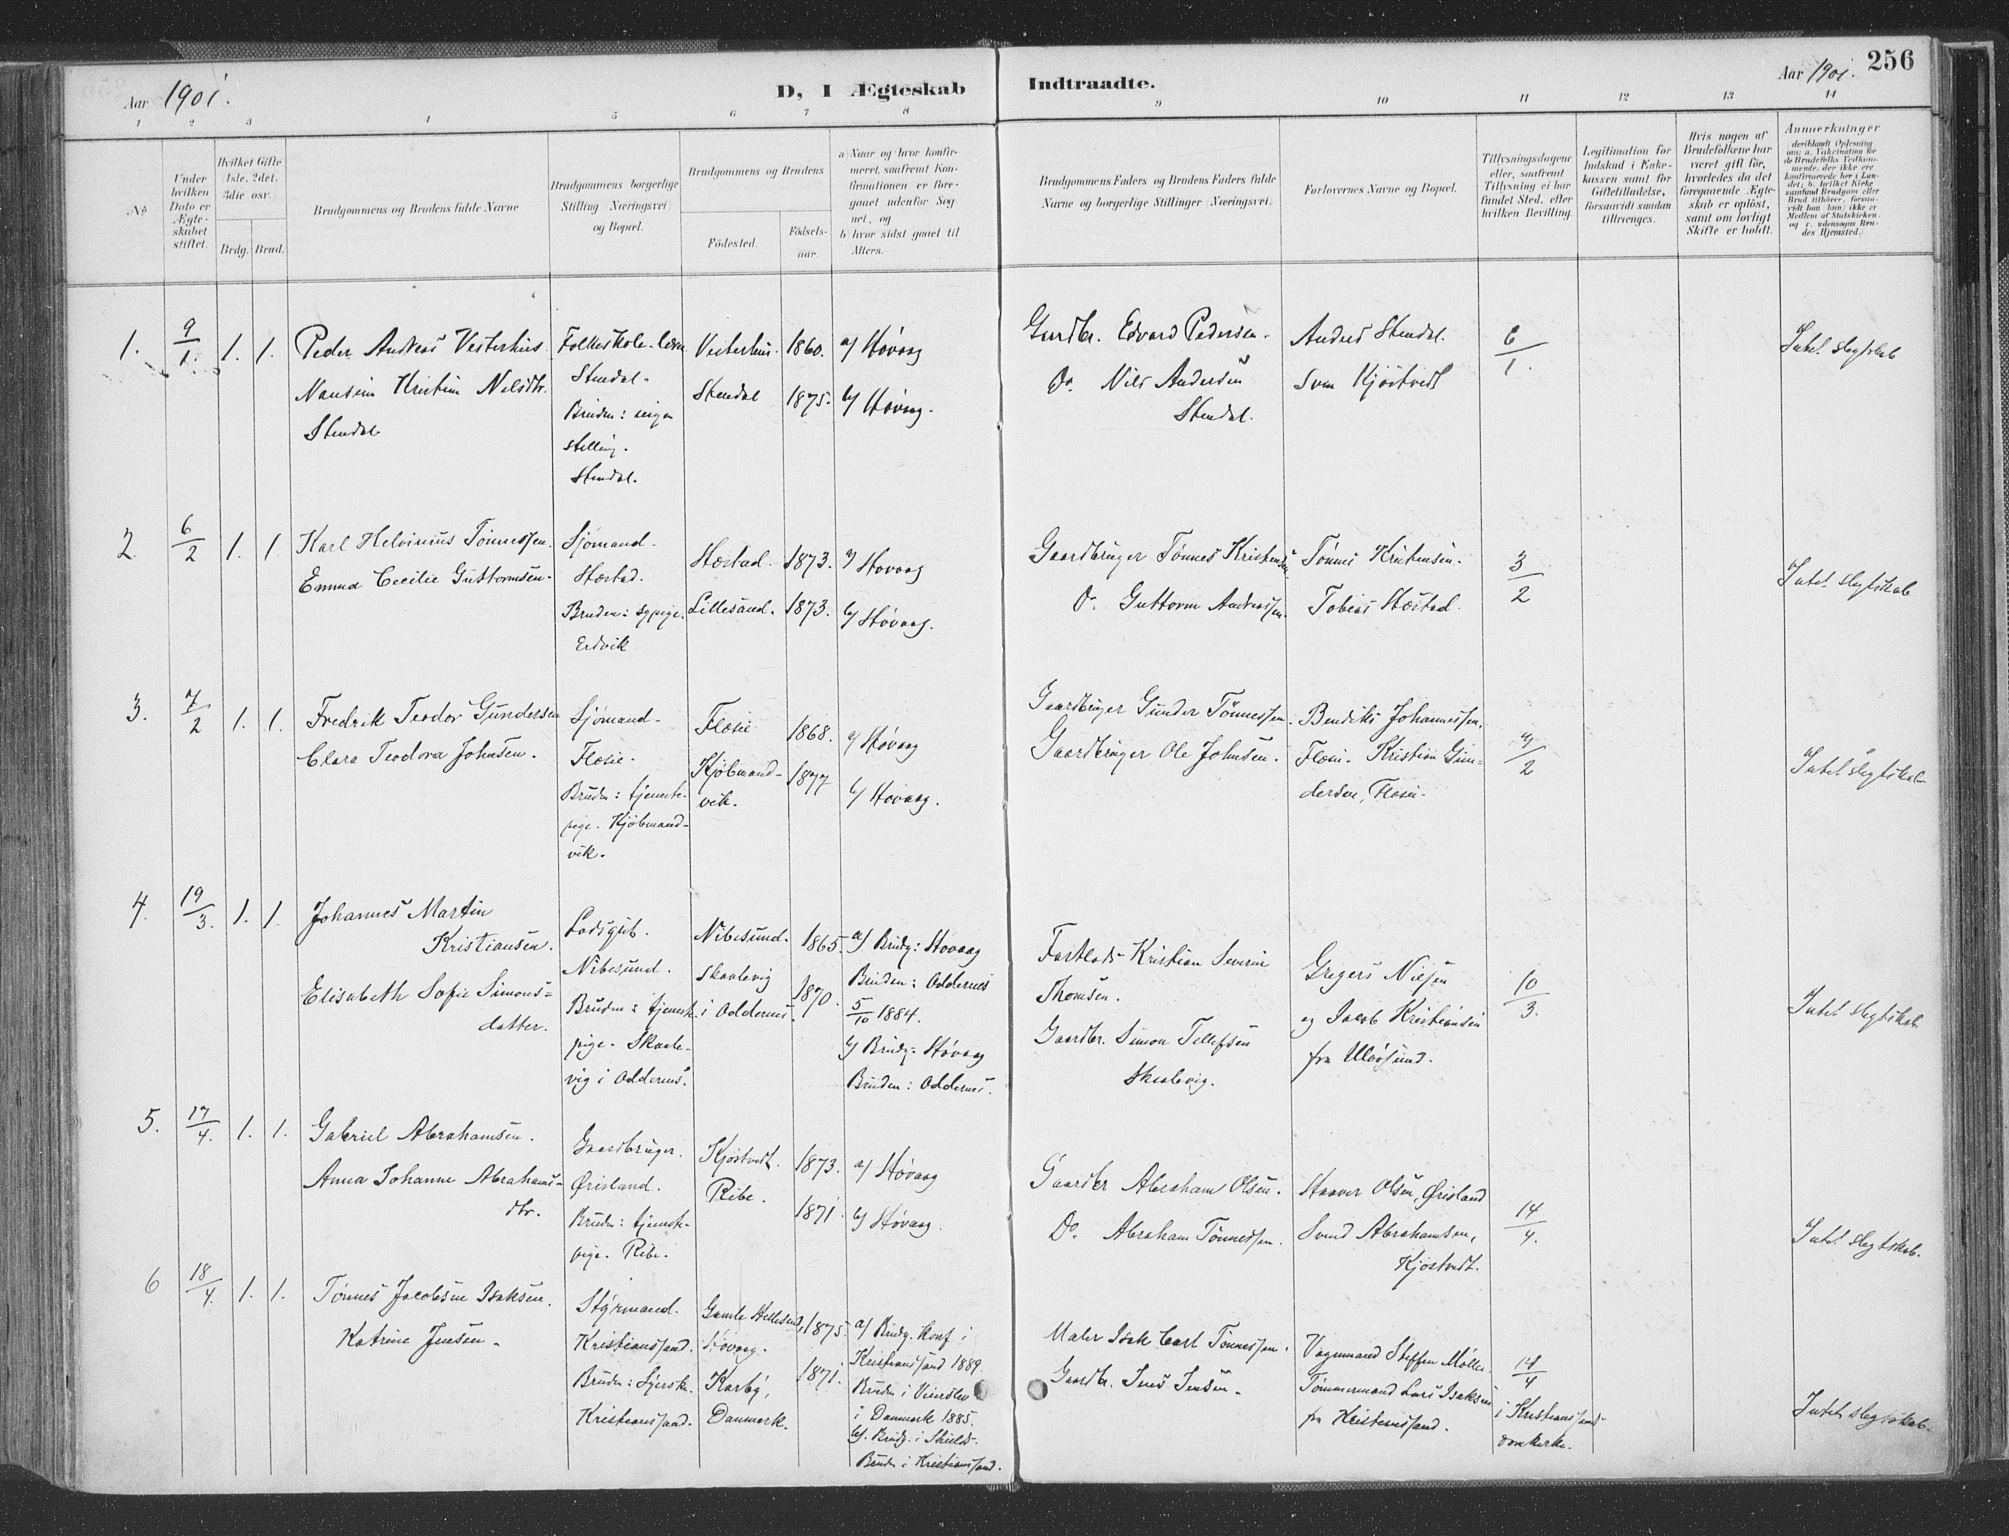 Aar 1901.
D, I Ægteskab Indtraadte.
Aar 1901.
256
1 2 3 4 5 6 7 8 9 10 11 12 13 14
No
Under hvilken Dato er Ægteskabet stiftet.
Hvilket Gifte 1ste. 2det. 3die osv.
Brdg. Brud.
Brudgommens og Brudens fulde Navne
Brudgommens borgerlige Stilling (Næringsvei) og Bopæl.
Brudgommens og Brudens
Fødested.
Fødselsaar.
a) Naar og hvor konfirmeret, saafremt Konfirmationen er foregaaet udenfor Sognet, og
b) hvor sidst gaaet til Alters.
Brudgommens Faders og Brudens Faders fulde Navne og borgerlige Stillinger (Næringsvei).
Forlovernes Navne og Bopæl.
Tillysningsdagene eller, saafremt Tillysning ei har fundet Sted, efter hvilken Bevilling.
Legitimation for Indskud i Enkekassen samt for Giftetilladelse, forsaavidt saadan tiltrænges.
Hvis nogen af Brudefolkene har været gift før, hvorledes da det foregaaende Ægteskab er opløst, samt om lovligt Skifte er holdt.
Anmerkninger
deriblandt Oplysning om: a. Vakcination for de Brudefolks Vedkommende, der ikke ere konfirmerede her i Landet; b. hvilket Kirkesamfund Brudgom eller Brud tilhører, forsaavidt han (hun) ikke er Medlem af Statskirken, og c. udensogns Brudes Hjemsted.
1. 9/1. 1. 1.
Peder Andreas Vesterhus.
Nansine Kristine Nilsdtr.
Stendal
Folkeskole-lærer
Stendal.
Bruden: ingen
stilling.
Stendal.
Vesterhus. 1860. a/ Høvaag
Stendal 1875. b/ Høvaag.
Gardbr. Edvard Pedersen.
Do. Nils Andersen
Stendal.
Anders Stendal.
Sven Kjøstvedt
6/1.
Intet slegtskab
2 6/2 1. 1.
Karl Helvinius Tønnessen.
Emma Cecilie Guttormsen.
Sjømand.
Hæstad.
Bruden: sypige.
Eidvik
Hæstad. 1873. a/ Høvaag
Lillesand. 1873. b/ Høvaag.
Gaardbruger Tønnes Kristensen
Do. Guttorm Andreassen.
Tønnes Kristensen.
Tobias Hæstad.
3/2
Intet slegtskab
3. 7/2 1. 1.
Fredrik Teodor Gundersen
Clara Teodora Johnsen.
Sjømand.
Fløsie.
Bruden: tjeneste-
pige. Kjøbmand-
vik.
Flosie 1868. a/ Høvaag
Kjøbmand-
vik. 1877 b/ Høvaag.
Gaardbruger Gunder Tønnessen.
Gaardbruger Ole Johnsen.
Bendiks Johannessen,
Flosie. Kristian Gun-
dersen, Flosie.
/2
Intet slegtskab
4. 19/3. 1. 1.
Johannes Martin
Kristiansen.
Elisabeth Sofie Simons-
datter.
Lodsgut.
Nibesund.
Bruden: tjeneste-
pige. Skaale-
vig i Oddernes.
Nibesund. 1865.
Skaalevig
i Oddernes. 1870.
a/ Brudg: Høvaag
Bruden: Oddernes
5/10 1884.
b/ Brudg: Høvaag
Bruden: Oddernes.
Fastlods Kristian Severin
Thomsen.
Gaardbr. Simon Tellefsen
Skaalevig.
Gregers Nielsen
og Jacob Kristiansen
fra Ulvøsund.
10/3.
Intet slegtskab.
5. 17/4. 1. 1.
Gabriel Abrahamsen.
Anna Johanne Abrahams-
dtr.
Gaardbruger.
Ørisland.
Bruden: tjeneste-
pige. Ribe.
Kjøstvedt. 1873. a/ Høvaag
Ribe. 1871. b/ Høvaag.
Gaardbr Abraham Olsen.
Do. Abraham Tønnessen.
Haaver Olsen, Ørisland
Svend Abrahamsen,
Kjøstvedt.
14/4.
Intet slegtskab.
6 18/4. 1. 1.
Tønnes Jacobsen Isaksen.
Katrine Jensen.
Styrmand.
Kristianssand.
Bruden: Syerske
Kristianssand.
Gamle Hellesund, 1875.
Høvaag.
Karby, 1871.
Danmark.
a/ Brudg. Konf i
Kristianssand 1889.
Bruden i Veierslev
i Danmark 1885.
b/. Brudg. i Shields.
Bruden i Kristianssand.
Maler Isak Carl Tønnessen.
Gaardbr. Jens Jensen.
Vognmand Steffen Møller.
Tømmermand Lars Isaksen
fra Kristianssand.
14/4
i Kristianssands
domkirke.
Intet slegtskab.